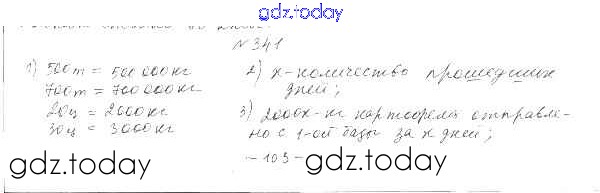 gdz.today
№341
1) 500т = 500 000кг
700т = 700 000кг
20ц = 2000кг
30ц = 3000кг
2) х-количество прошедших
дней;
3) 2000х-кг картофеля отправле-
но с 1-ой базы за х дней;
- 103 -
gdz.today
gdz.today